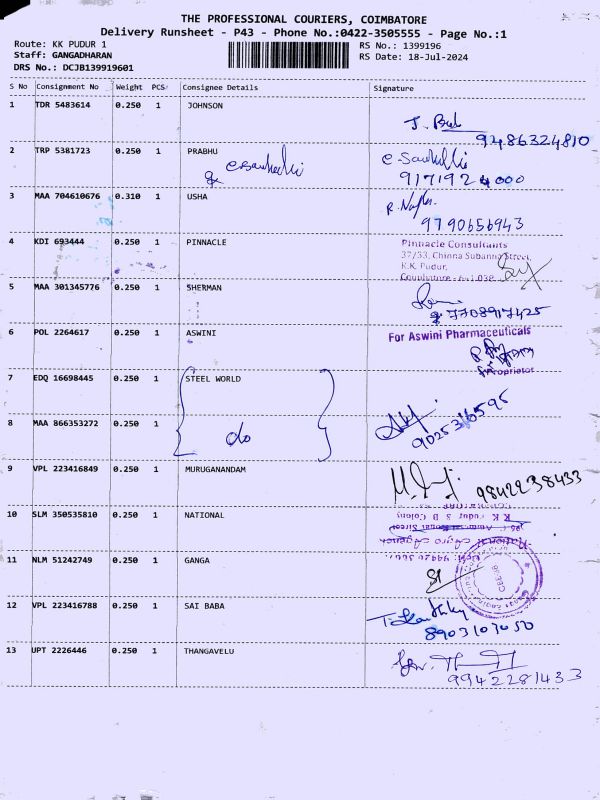 THE PROFESSIONAL COURIERS, COIMBATORE
Delivery Runsheet - P43 - Phone No.:0422-3505555 - Page No.:1
Route: KK PUDUR 1 RS No.: 1399196
Staff: GANGADHARAN RS Date: 18-Jul-2024
DRS No.: DCJB139919601
S No Consignment No Weight PCS Consignee Details Signature
1 TDR 5483614 0.250 1 JOHNSON
9486324810
2 TRP 5381723 0.250 1 PRABHU
9171924000
3 MAA 704610676 0.310 1 USHA
9790656943
4 KDI 693444 0.250 1 PINNACLE Pinnacle Consultants
37/33, Chinna Subanna Street,
K.K. Pudur,
5 MAA 301345776 0.250 1 SHERMAN
7708917425
6 POL 2264617 0.250 1 ASWINI For Aswini Pharmaceuticals
7 EDQ 16698445 0.250 1 STEEL WORLD
8 MAA 866353272 0.250 1 do
9025316595
9 VPL 223416849 0.250 1 MURUGANANDAM
9842238433
10 SLM 350535810 0.250 1 NATIONAL
National Agro Agency
11 NLM 51242749 0.250 1 GANGA
12 VPL 223416788 0.250 1 SAI BABA
8903107050
13 UPT 2226446 0.250 1 THANGAVELU
9942281433